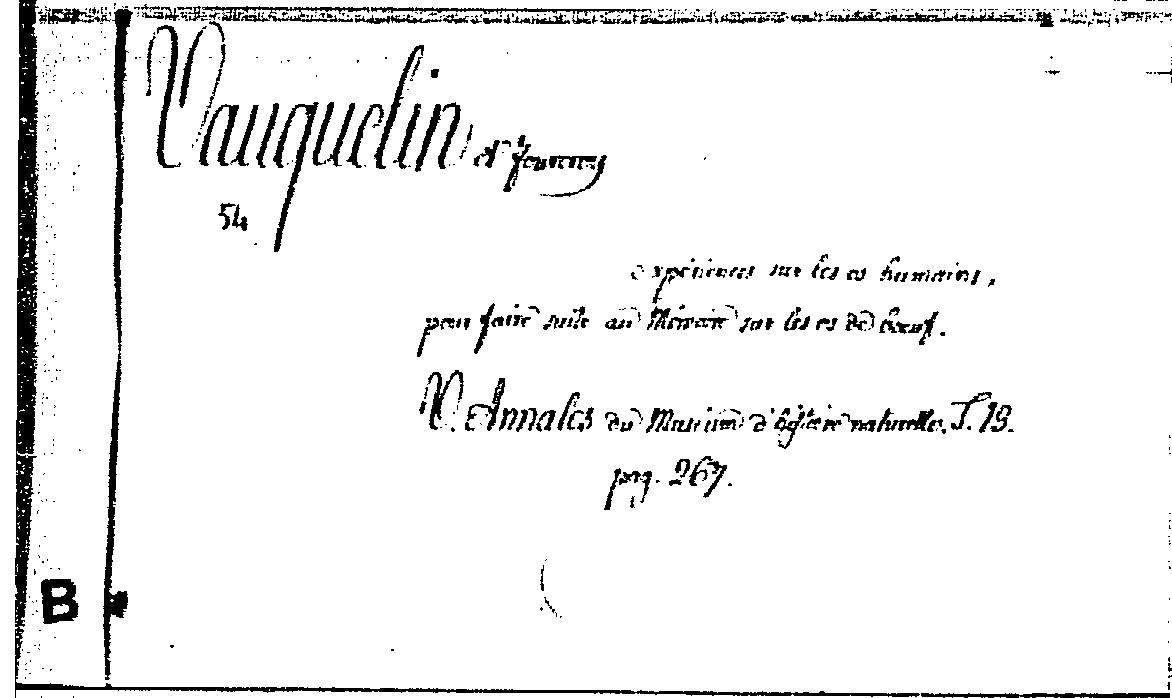 Vauquelin et fourcroy
54
expériences sur les os humains,
pour faire suite au Mémoire sur les os de boeuf.
V. Annales du Muséum d'histoire naturelle. T. 13.
pag. 267.
B